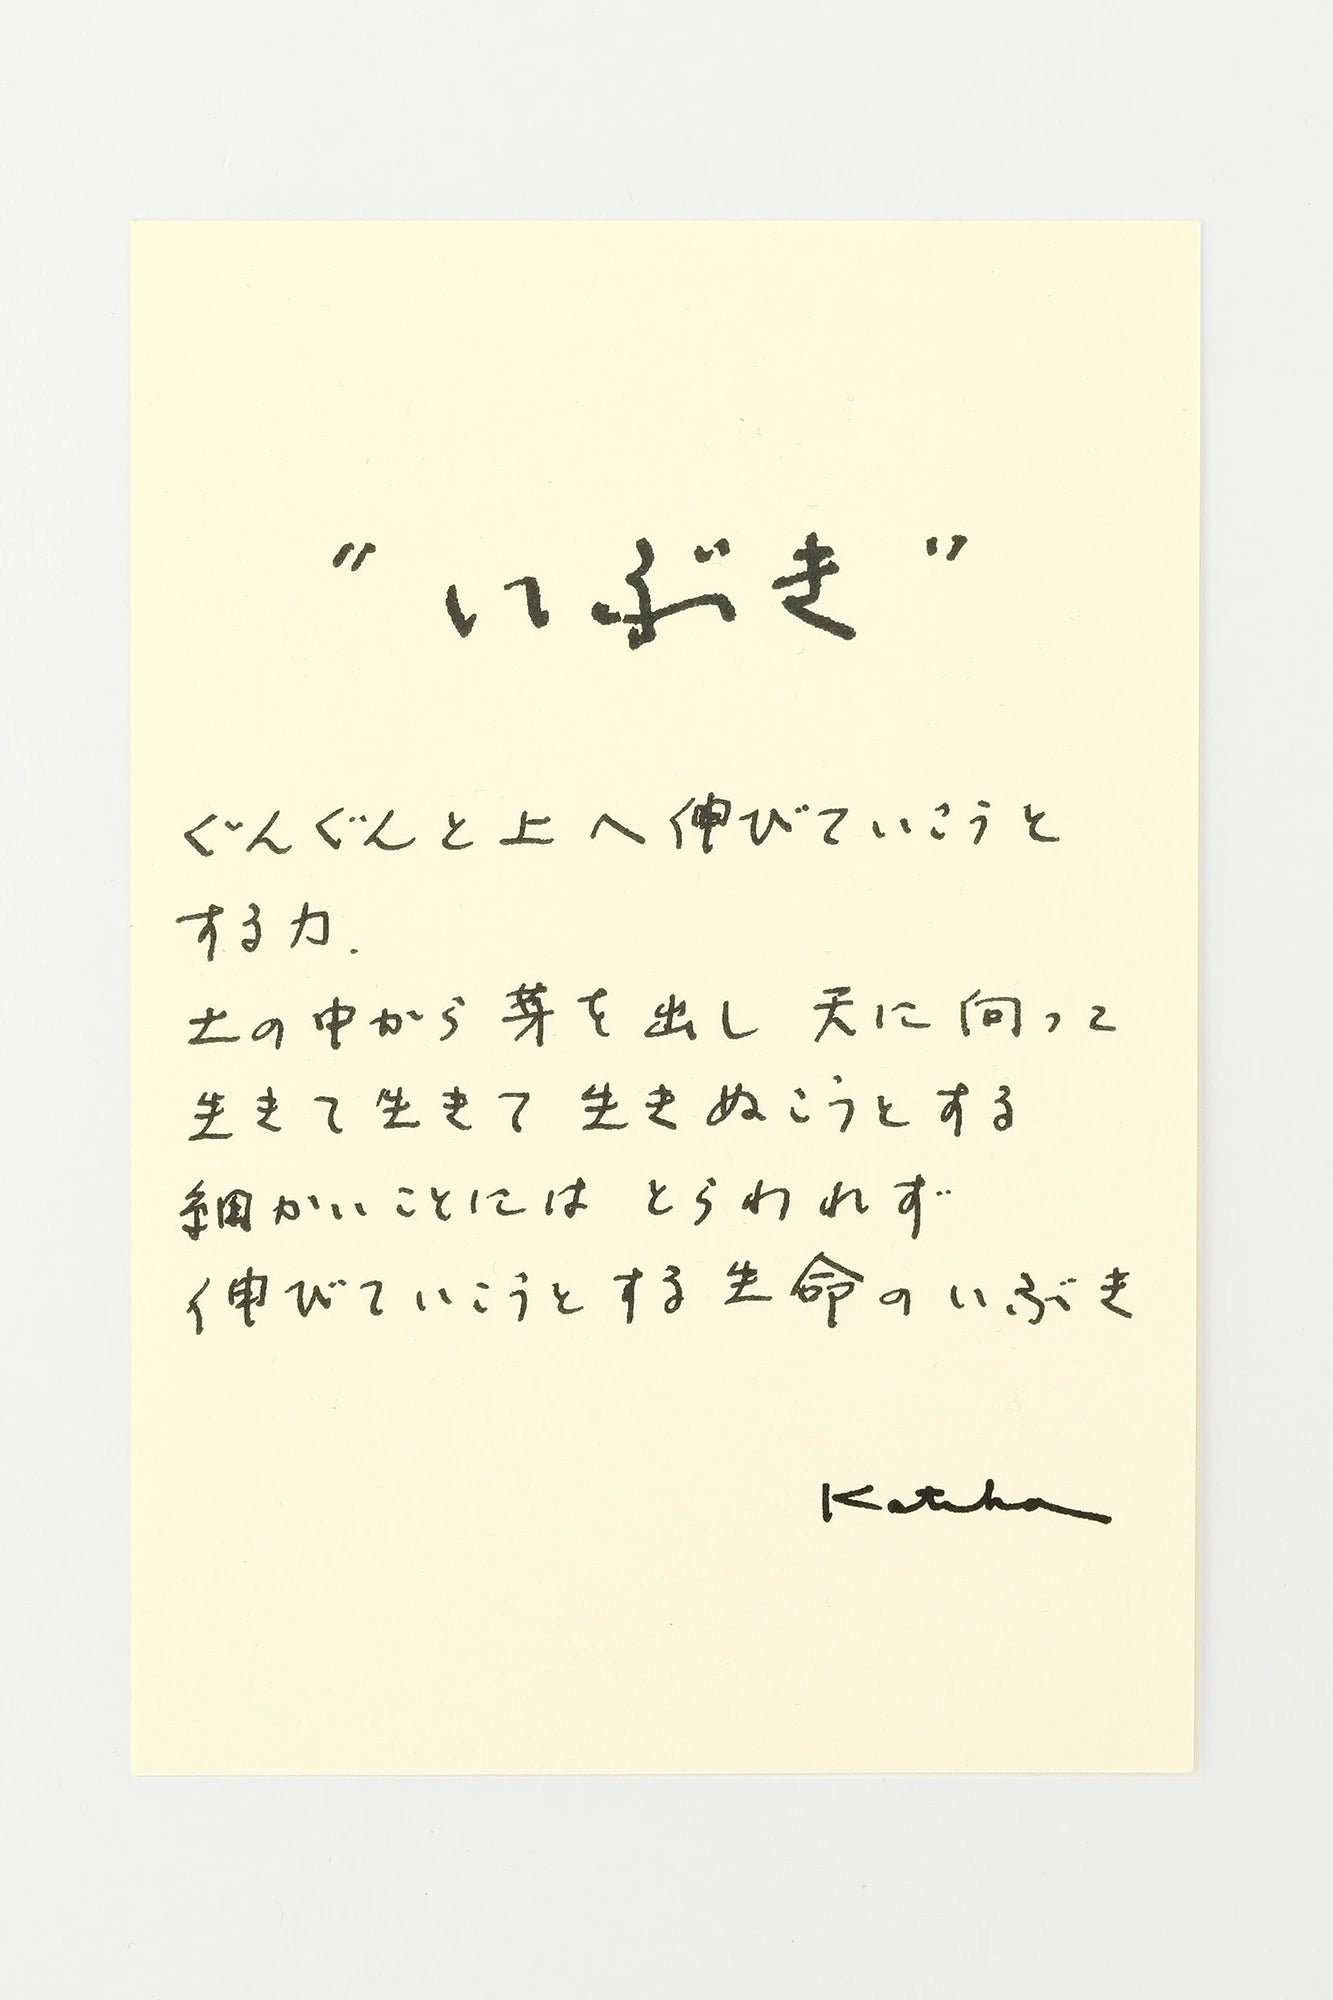 "いぶき"
ぐんぐんと上へ伸びていこうと
する力.
土の中から芽を出し 天に向って
生きて生きて 生きぬこうとする
細かいことには とらわれず
伸びていこうとする生命のいぶき